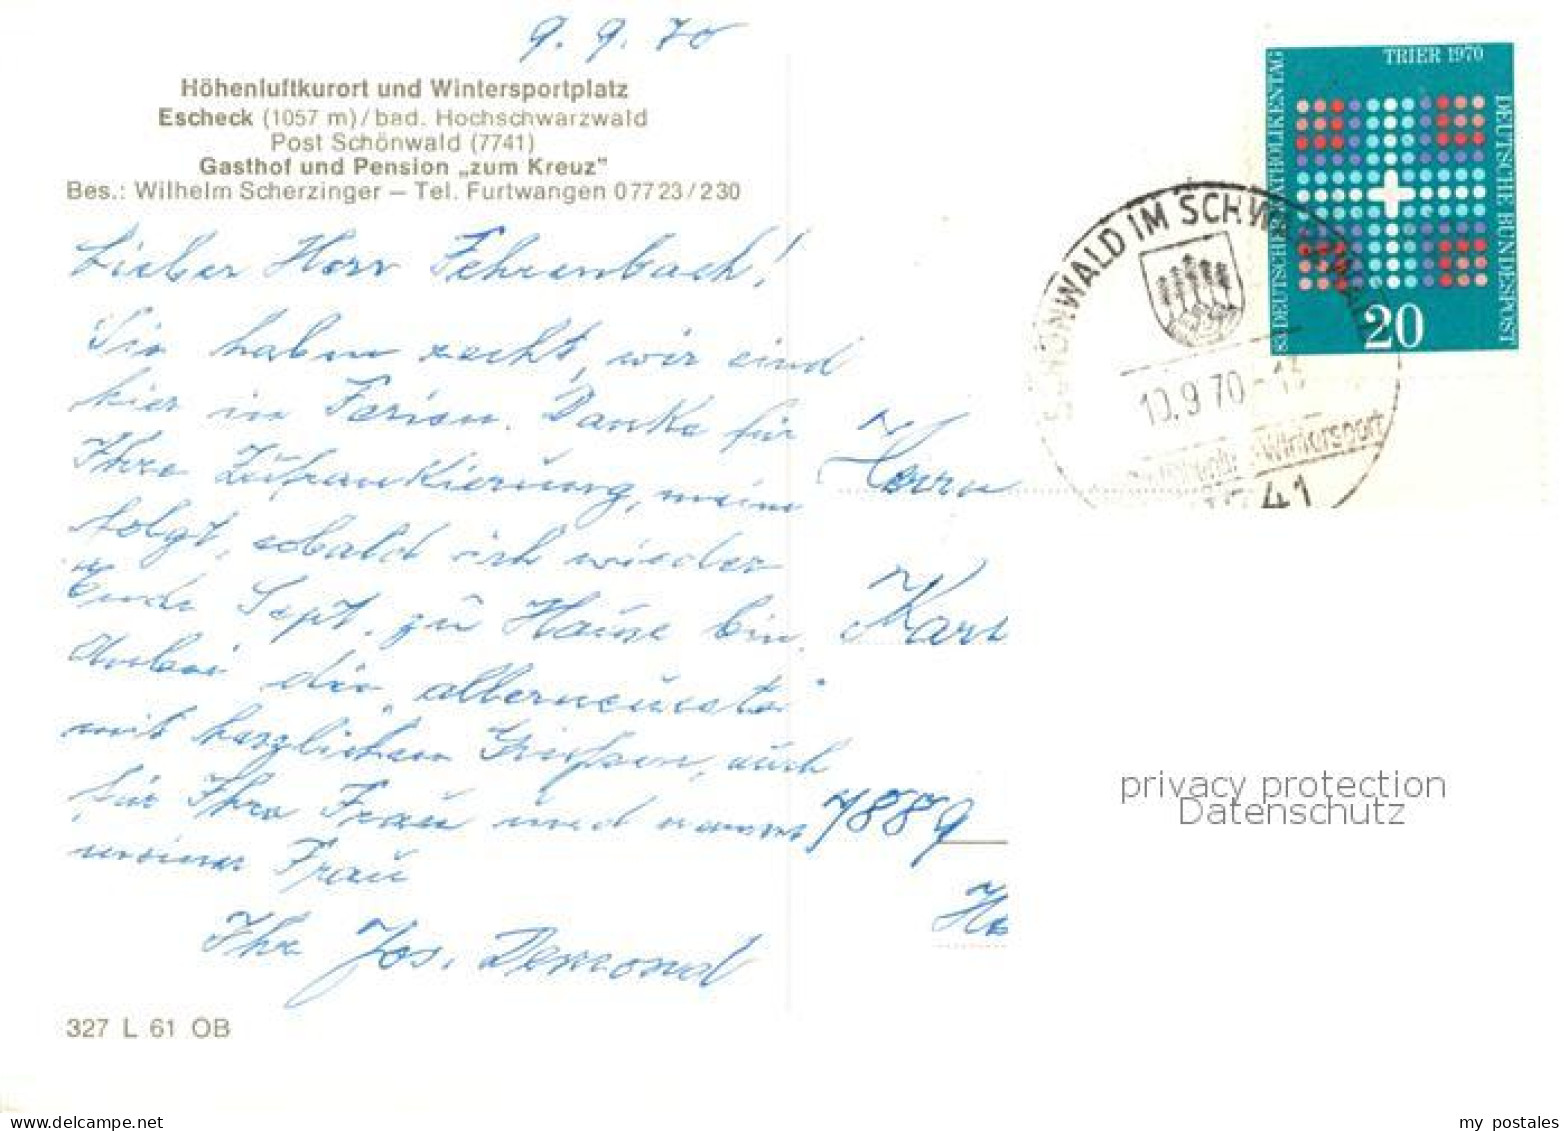 9. 9. 70
Höhenluftkurort und Wintersportplatz
Escheck (1057 m) / bad. Hochschwarzwald
Post Schönwald (7741)
Gasthof und Pension „zum Kreuz"
Bes.: Wilhelm Scherzinger – Tel. Furtwangen 0 77 23 / 230
Lieber Herr Fehrenbach!
Sie haben recht, wir sind
hier in Ferien. Danke für
Ihre Zufrankierung, meine
folgt, sobald ich wieder
Ende Sept. zu Hause bin.
Anbei die „allerneueste"
mit herzlichen Grüßen, auch
für Ihre Frau und namens
meiner Frau
Ihr Jos.
327 L 61 OB
TRIER 1970
83. DEUTSCHER KATHOLIKENTAG
DEUTSCHE BUNDESPOST
20
SCHÖNWALD IM SCHWARZWALD
10.9.70-13
Wintersport
7741
Herrn
Kar
7889
privacy protection
Datenschutz
www.delcampe.net
my_postales